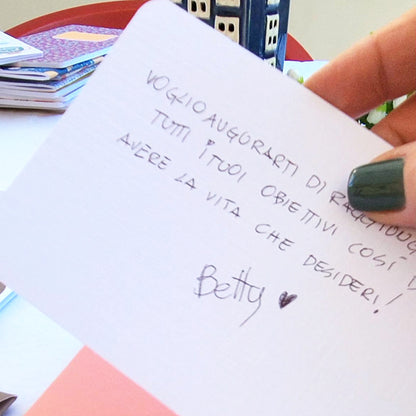 VOGLIO AUGURARTI DI RAGGIUNGE
TUTTI I TUOI OBIETTIVI COSÌ D
AVERE LA VITA CHE DESIDERI!
Betty ♥